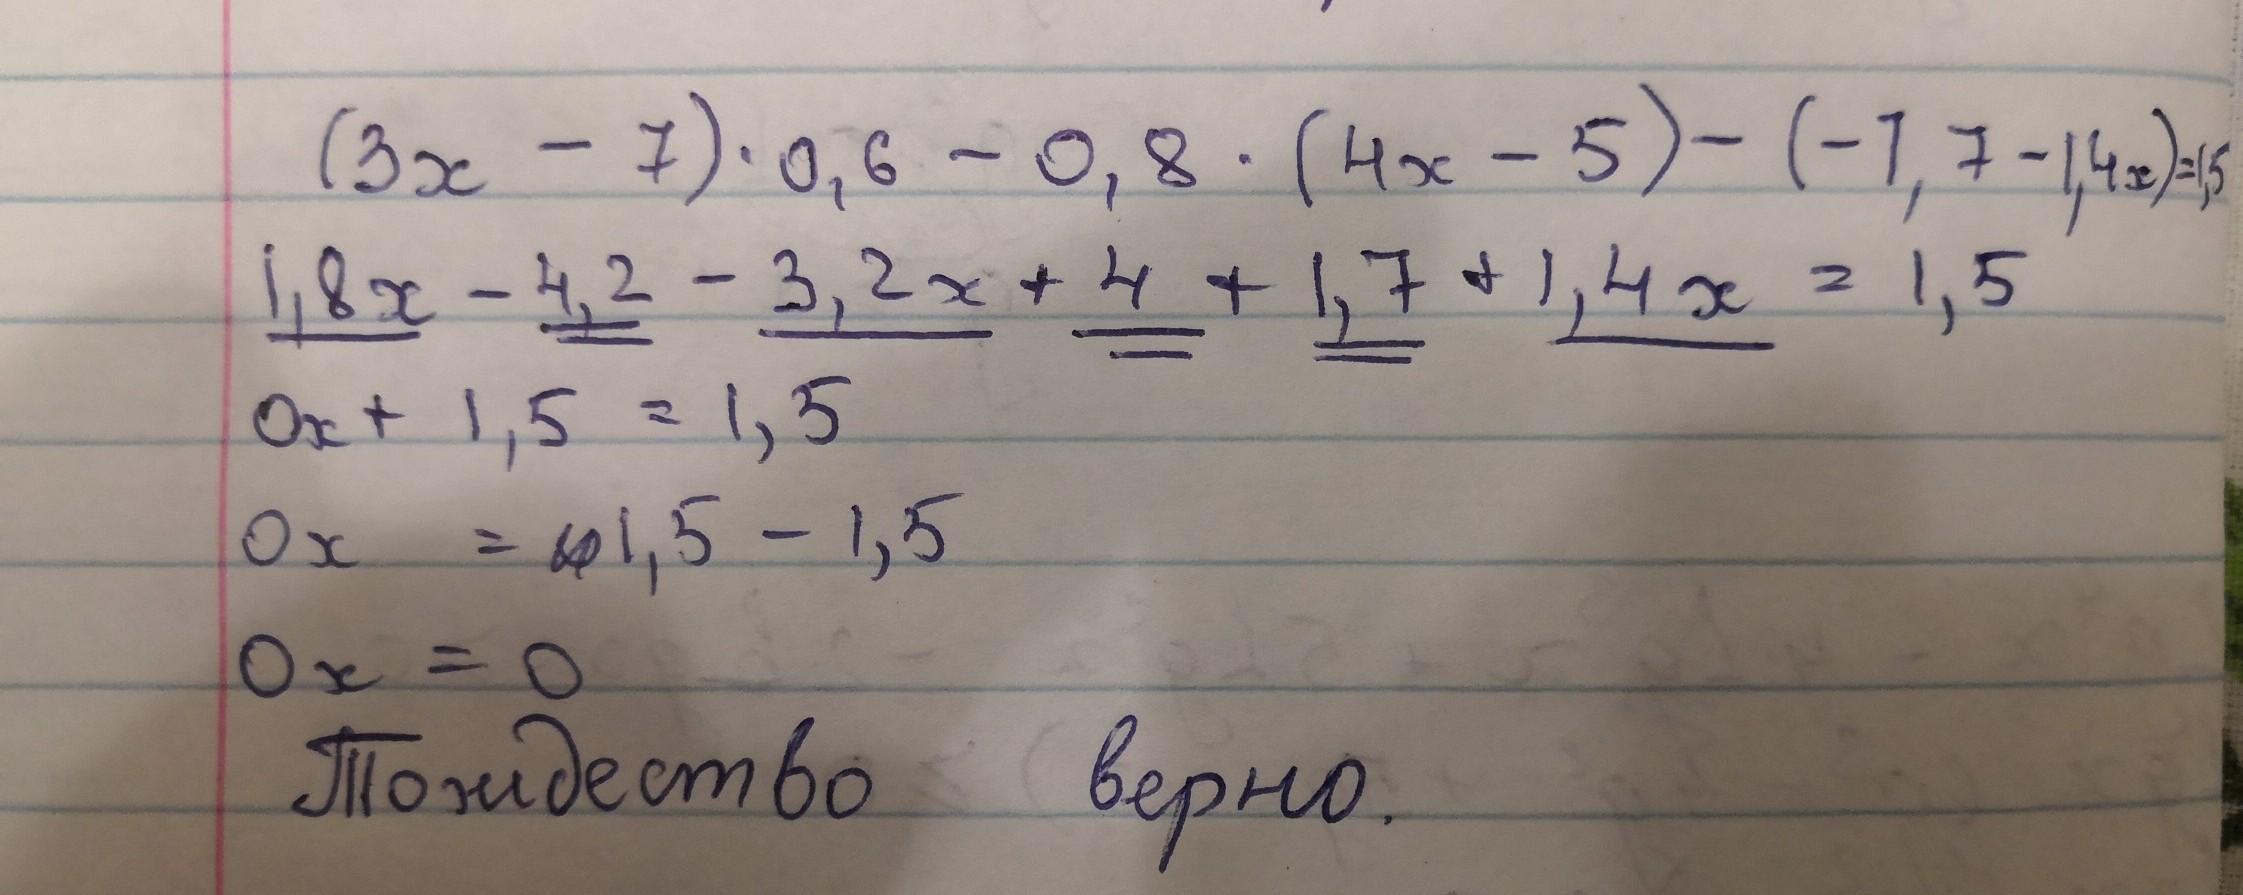 (3x - 7)·0,6 - 0,8·(4x - 5) - (-1,7 - 1,4x)=1,5
1,8x - 4,2 - 3,2x + 4 + 1,7 + 1,4x = 1,5
0x + 1,5 = 1,5
0x = 1,5 - 1,5
0x = 0
Тождество верно.